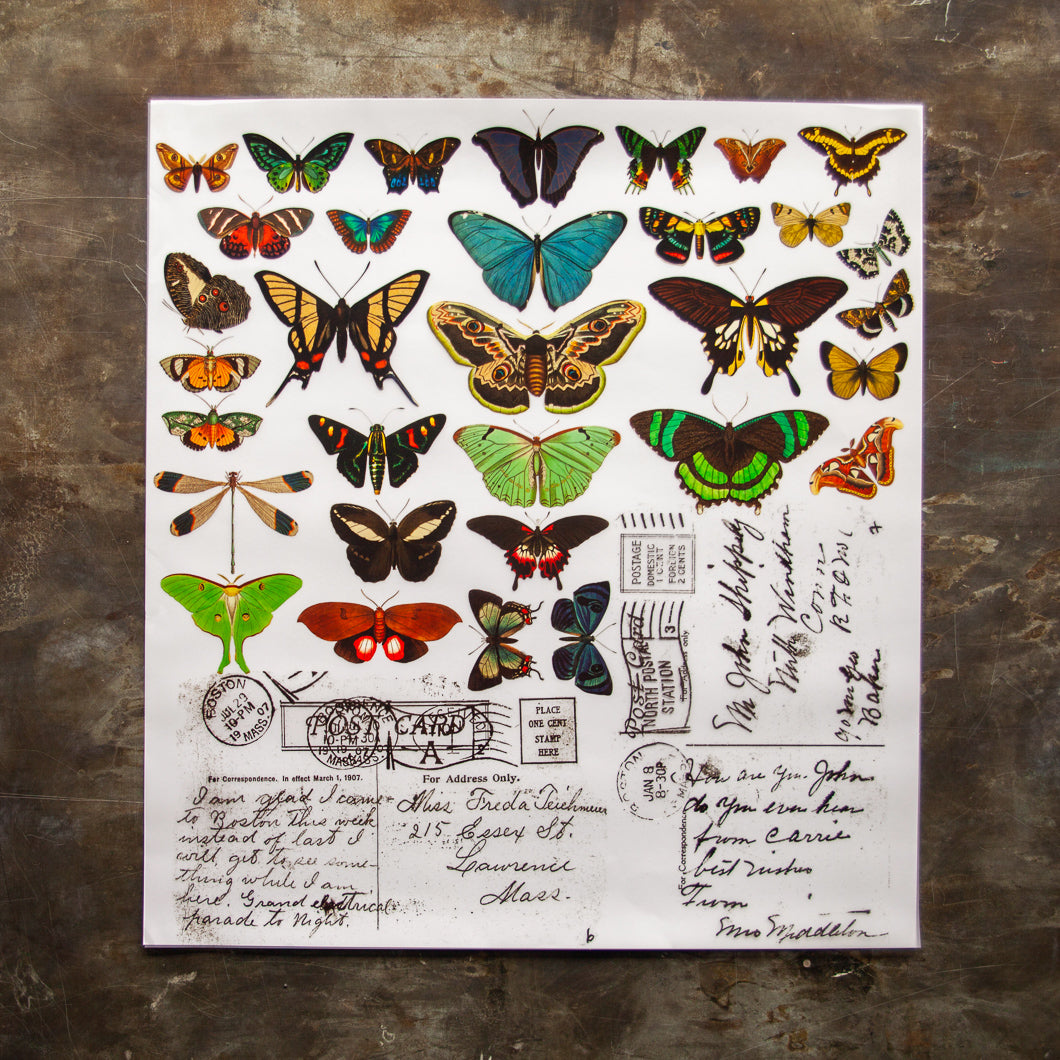 POSTAGE
DOMESTIC
1 CENT
FOREIGN
2 CENTS
Post Card
NORTH POSTAL
STATION
3
Mr John Shippey
North Windham
Conn
BOSTON
JUL 29
19-PM
19
MASS. 07
POST CARD
10-PM
MASS.
A
2
PLACE
ONE CENT
STAMP
HERE
BOSTON
JAN 8
8-30P
For Correspondence. In effect March 1, 1907.
For Address Only.
I am glad I came
to Boston this week
instead of last I
will get to see some-
thing while I am
here. Grand electrical
parade to Night.
Miss Freda Teichmeier
215 Essex St.
Lawrence
Mass.
For Correspondence
How are you John
do you ever hear
from Carrie
best wishes
From
Mrs Middleton
b